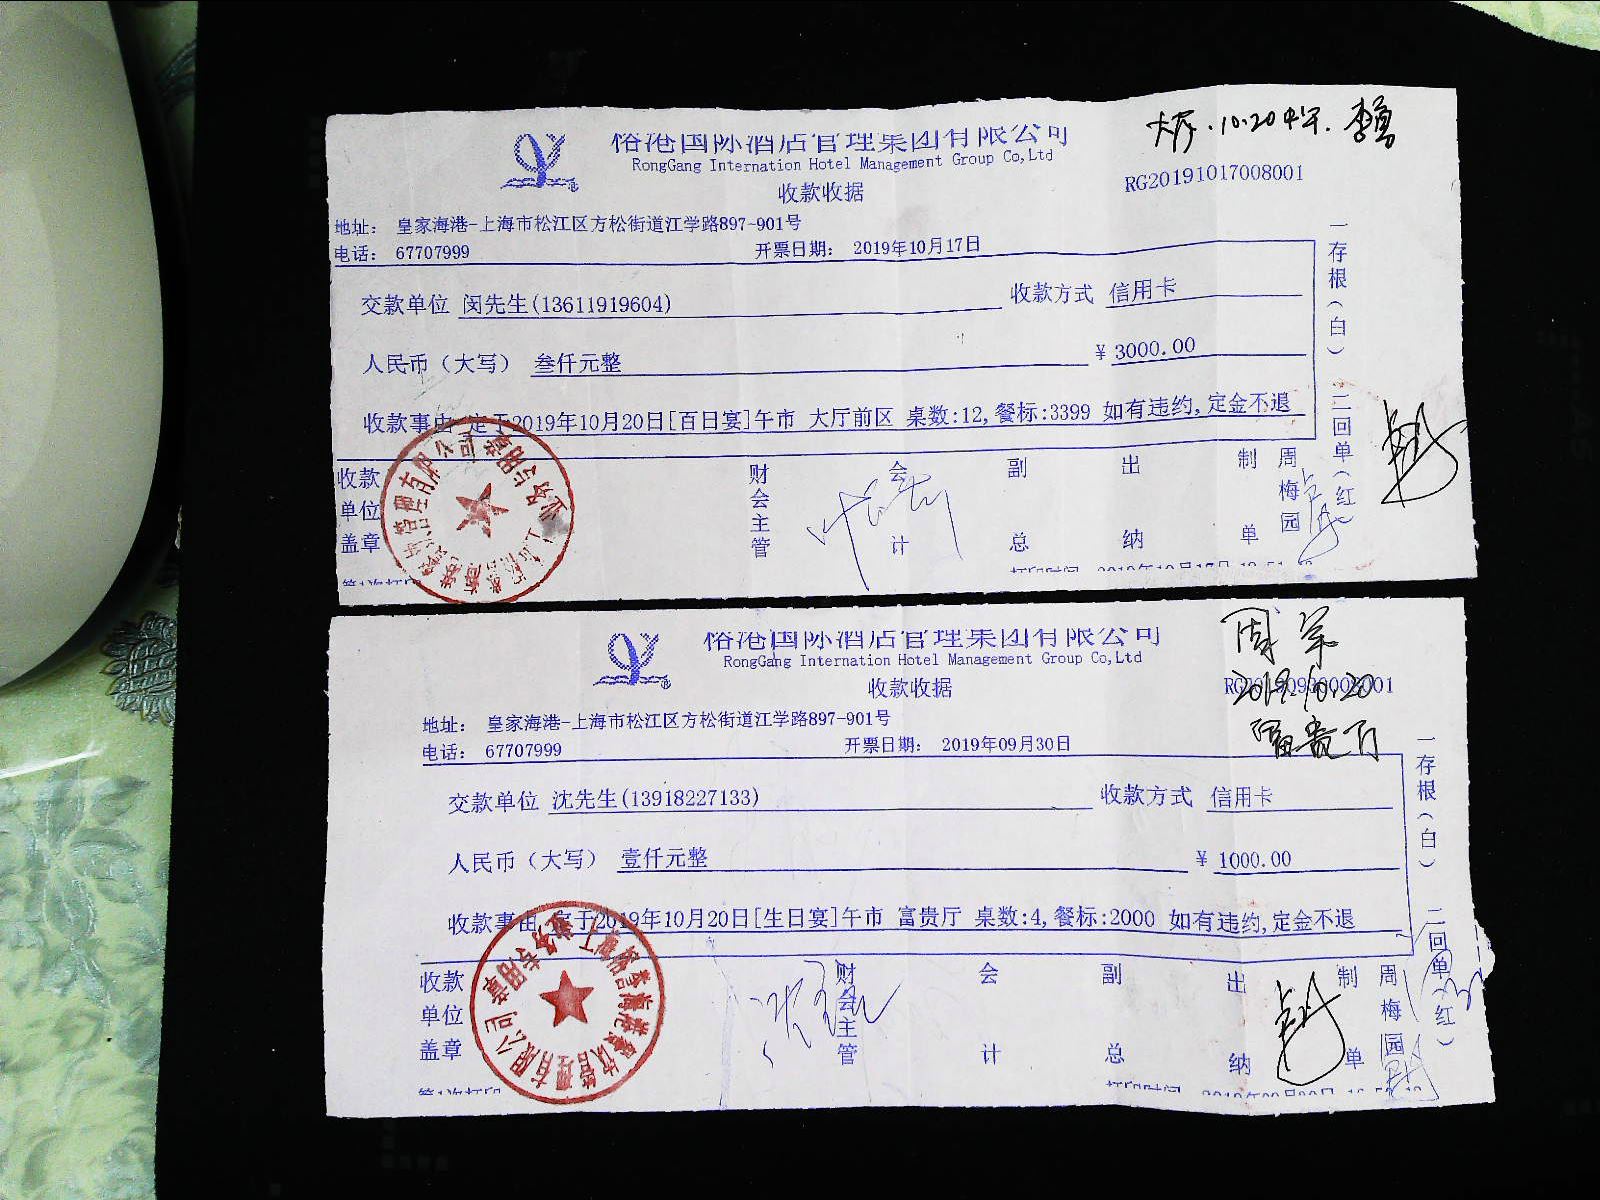 大厅.10.20中午.
熔港国际酒店管理集团有限公司
RongGang International Hotel Management Group Co,Ltd
收款收据
RG20191017008001
地址： 皇家海港-上海市松江区方松街道江学路897-901号
电话： 67707999
开票日期： 2019年10月17日
交款单位 闵先生(13611919604)
收款方式 信用卡
人民币（大写） 叁仟元整
￥ 3000.00
收款事由 定于2019年10月20日[百日宴]午市 大厅前区 桌数:12,餐标:3399 如有违约,定金不退
一存根（白） 二回单（红）
收款单位盖章
财会主管
会计
副总
出纳
制单
周梅园
业务专用章
第1次打印
打印时间
熔港国际酒店管理集团有限公司
RongGang International Hotel Management Group Co,Ltd
收款收据
周军
2019.10.20
富贵厅
地址： 皇家海港-上海市松江区方松街道江学路897-901号
电话： 67707999
开票日期： 2019年09月30日
交款单位 沈先生(13918227133)
收款方式 信用卡
人民币（大写） 壹仟元整
￥ 1000.00
收款事由 定于2019年10月20日[生日宴]午市 富贵厅 桌数:4,餐标:2000 如有违约,定金不退
一存根（白） 二回单（红）
收款单位盖章
财会主管
会计
副总
出纳
制单
周梅园
业务专用章
第1次打印
打印时间